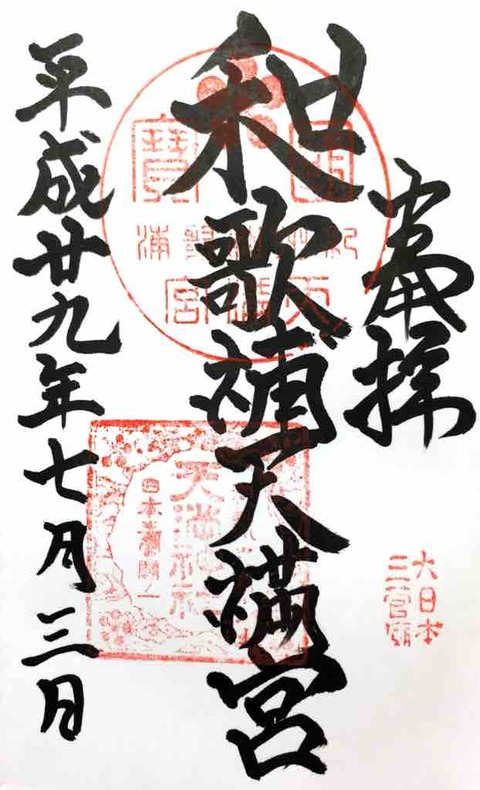 奉拝
大日本
三菅廟
和歌浦天満宮
天満神社
日本菅廟一
平成廿九年七月三日